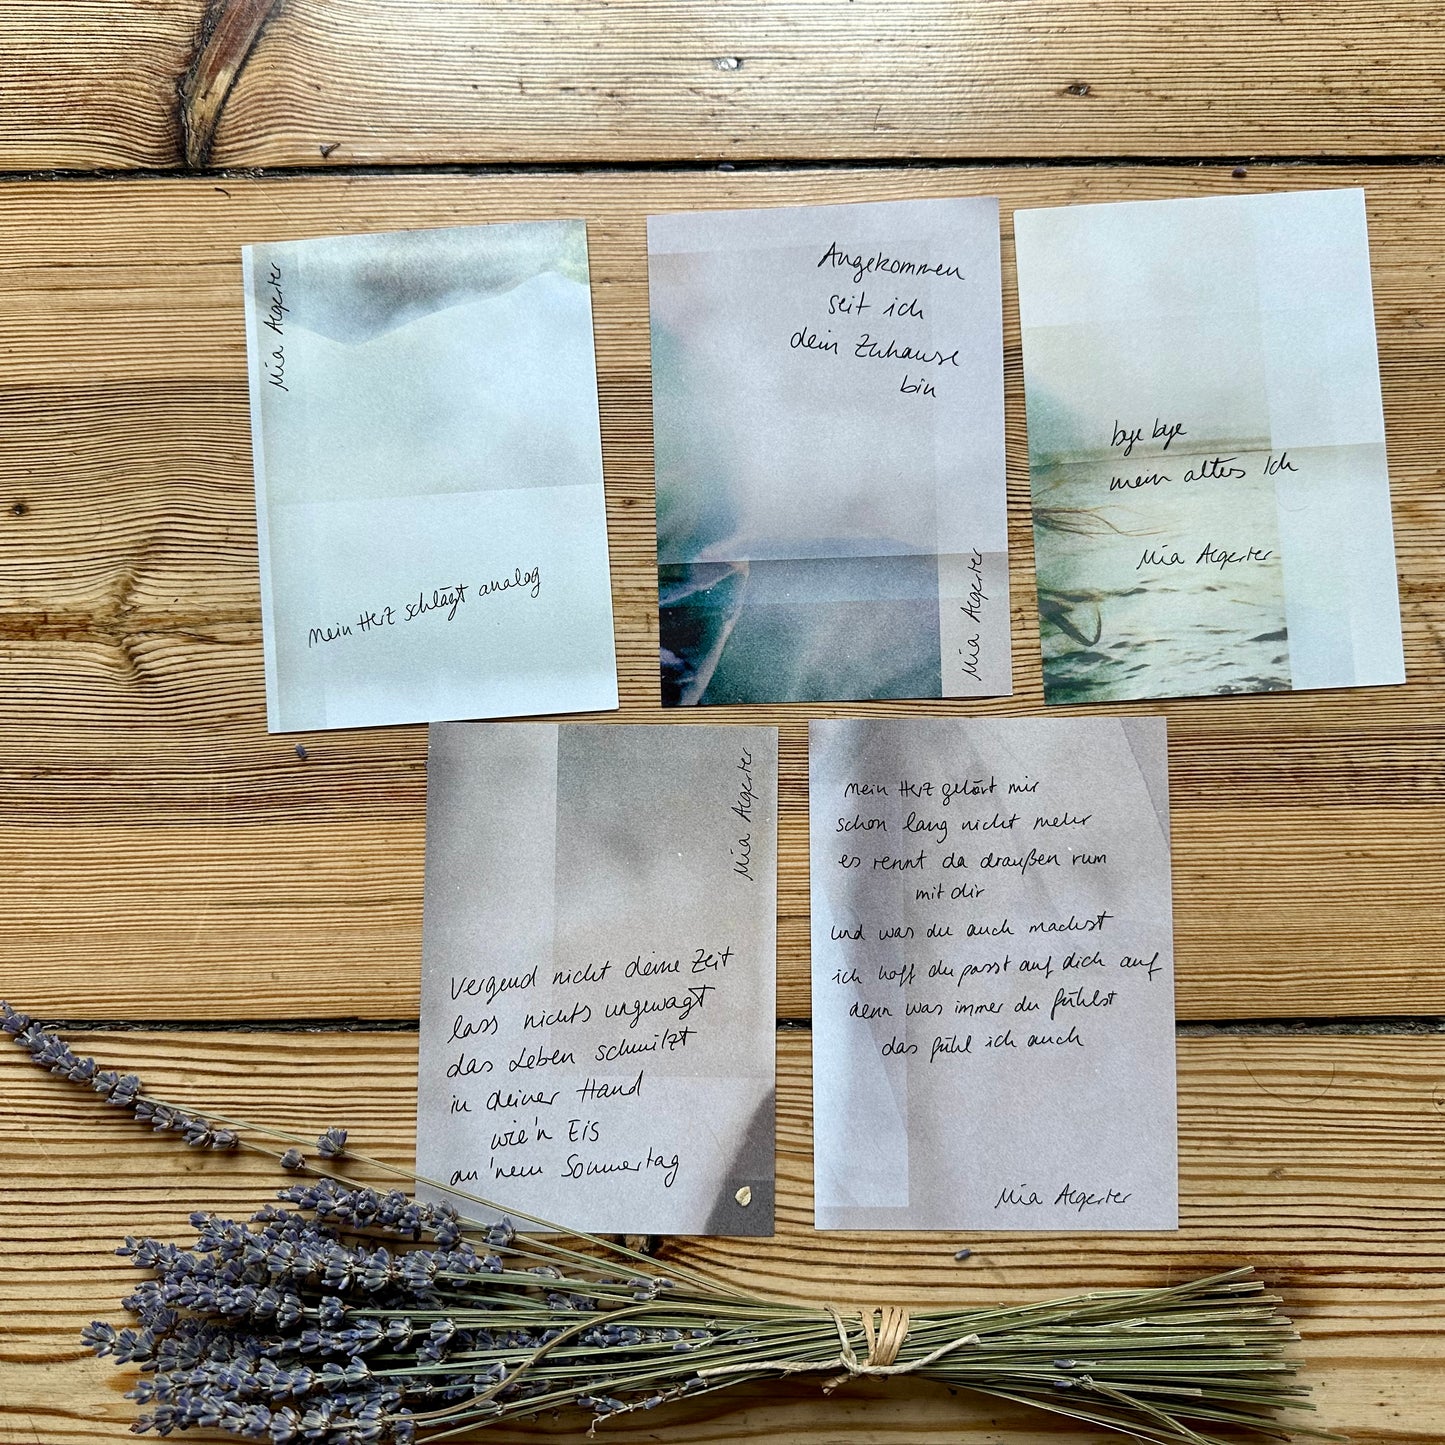 Mia Aegerter
Mein Herz schlägt analog
Angekommen
seit ich
dein Zuhause
bin
Mia Aegerter
bye bye
mein altes Ich
Mia Aegerter
Mia Aegerter
Vergeud nicht deine Zeit
lass nichts ungewagt
das Leben schmilzt
in deiner Hand
wie'n Eis
an 'nem Sommertag
Mein Herz gehört mir
schon lang nicht mehr
es rennt da draußen rum
mit dir
und was du auch machst
ich hoff du passt auf dich auf
denn was immer du fühlst
das fühl ich auch
Mia Aegerter